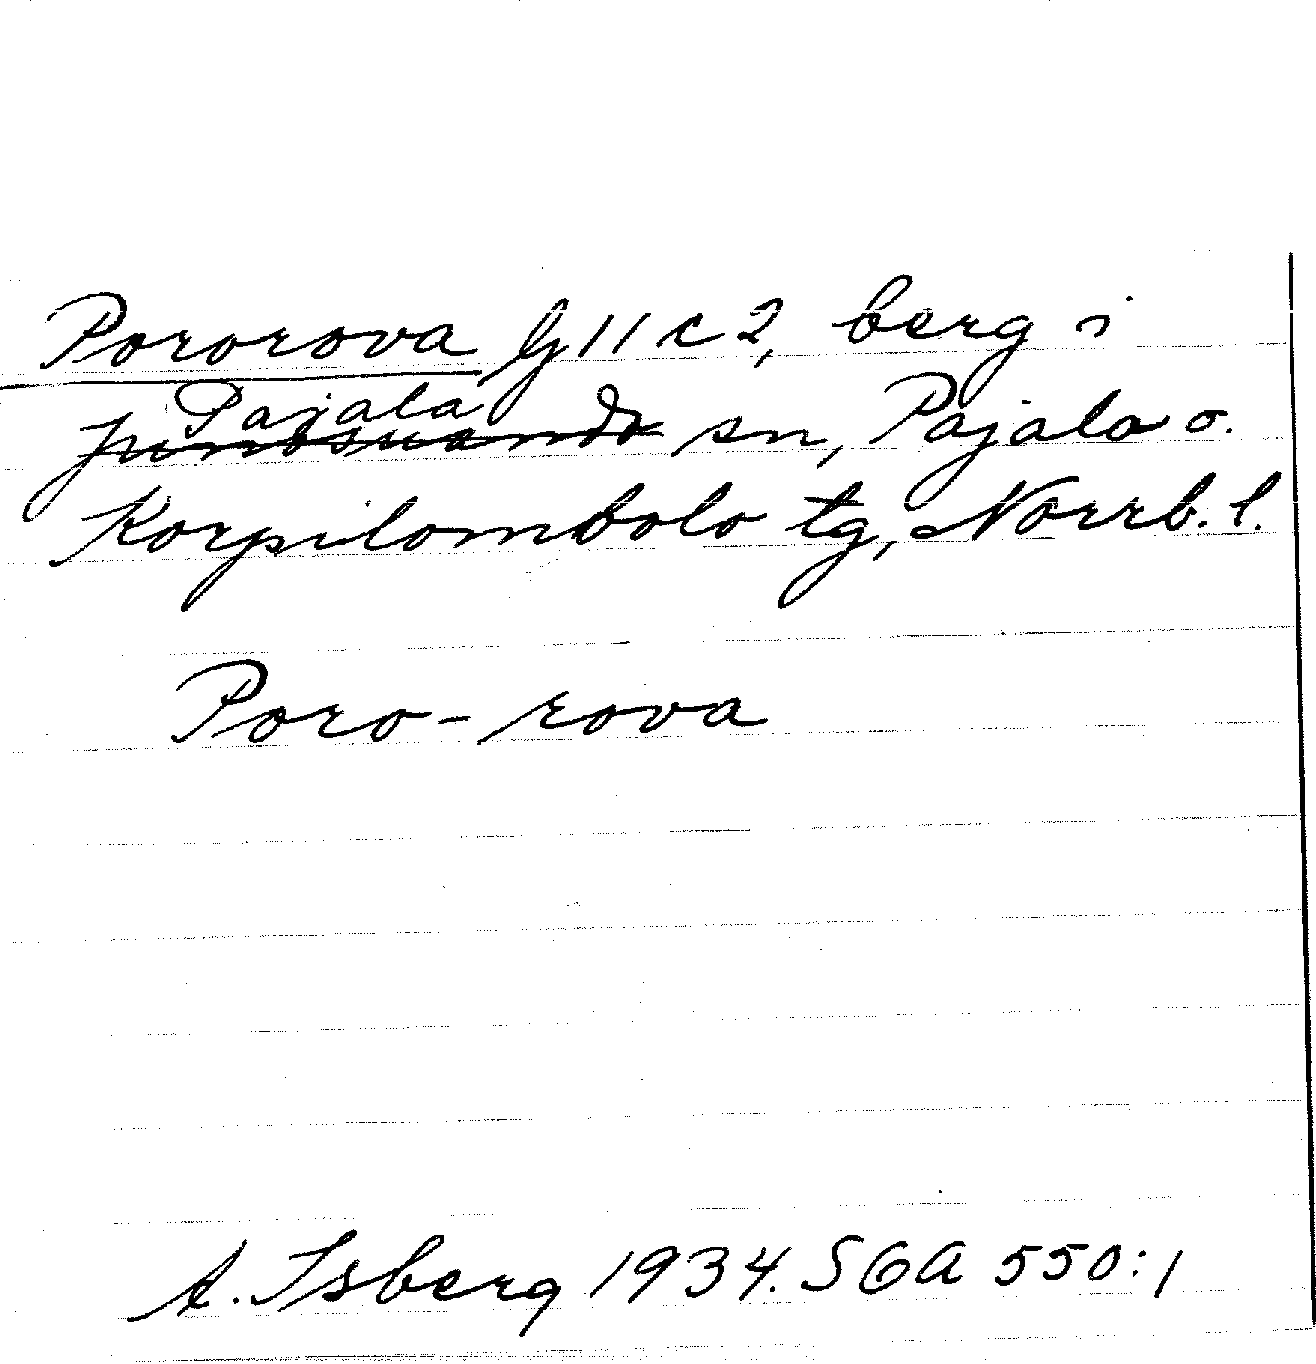 Pororova G11c2, berg i
Pajala
Junosuando sn, Pajala o.
Korpilombolo tg, Norrb. l.
Poro-rova
A. Isberg 1934. SGA 550:1